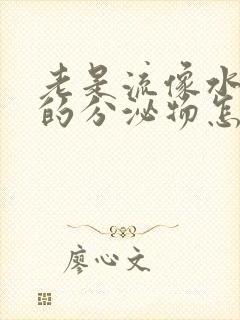 老是流像水
的分泌物怎
廖心文